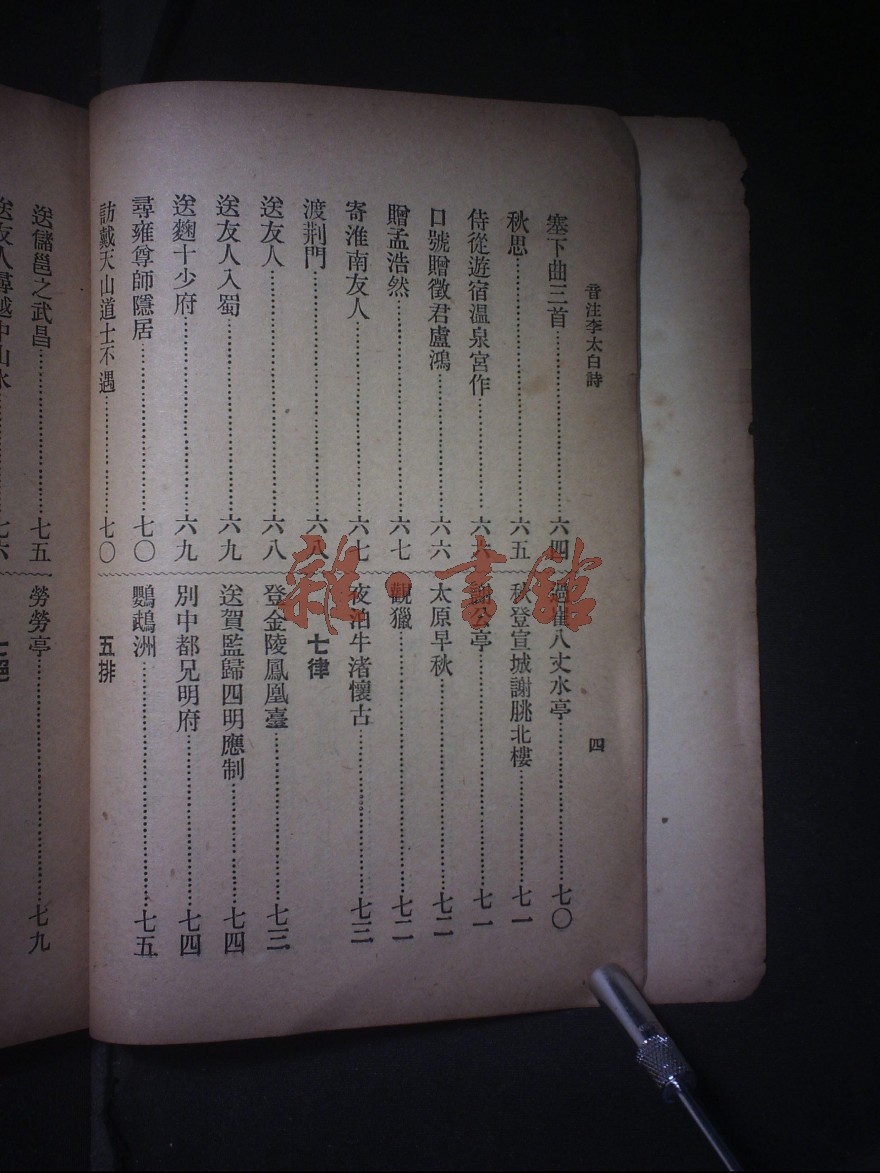 音注李太白詩
四
塞下曲三首…………六四
秋思…………六五
侍從遊宿溫泉宮作…………六六
口號贈徵君盧鴻…………六六
贈孟浩然…………六七
寄淮南友人…………六七
渡荆門…………六八
送友人…………六八
送友人入蜀…………六九
送麴十少府…………六九
尋雍尊師隱居…………七〇
訪戴天山道士不遇…………七〇
過崔八丈水亭…………七〇
秋登宣城謝朓北樓…………七一
謝公亭…………七一
太原早秋…………七二
觀獵…………七二
夜泊牛渚懷古…………七三
七律
登金陵鳳凰臺…………七三
送賀監歸四明應制…………七四
別中都兄明府…………七四
鸚鵡洲…………七五
五排
送儲邕之武昌…………七五
送友人尋越中山水…………七六
勞勞亭…………七九
七絕
雜·書館